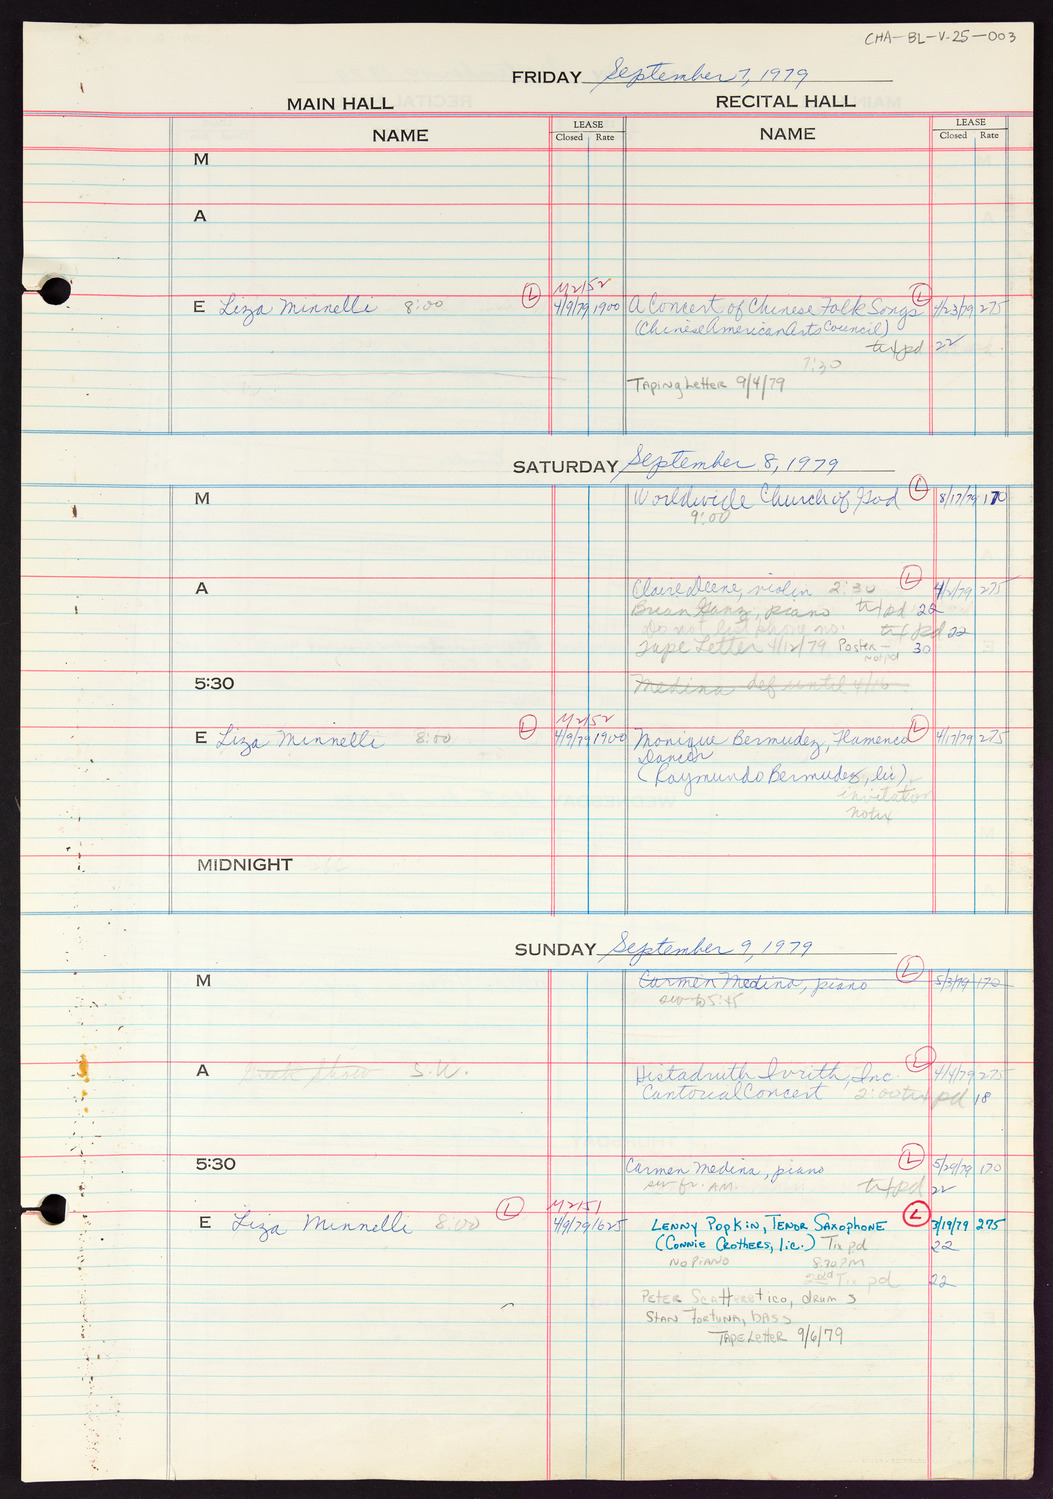 CHA-BL-V-25-003
FRIDAY September 7, 1979
MAIN HALL RECITAL HALL
NAME LEASE Closed Rate NAME LEASE Closed Rate
M
A
M2152
E Liza Minnelli 8:00 L 4/9/79 1900 A Concert of Chinese Folk Songs L 4/23/79 275
(Chinese American Arts Council)
tix pd 22
7:30
Taping Letter 9/4/79
SATURDAY September 8, 1979
M Worldwide Church of God L 8/17/79 170
9:00
A Claire Deene, violin 2:30 L 4/12/79 275
Brian Ganz, piano tix pd 22
Do not list phone no. tix pd 22
Tape Letter 4/12/79 Poster - 30
Not pd
5:30 Medina def until 4/16
M2152
E Liza Minnelli 8:00 L 4/9/79 1900 Monique Bermudez, Flamenco L 4/17/79 275
Dancer
(Raymundo Bermudez, lic)
invitation
notix
MIDNIGHT
SUNDAY September 9, 1979
M Carmen Medina, piano L 5/3/79 170
sw to 5:45
A S.W. Histadruth Ivrith, Inc. L 4/4/79 275
Cantorial Concert 2:00 tix pd 18
5:30 Carmen Medina, piano L 5/29/79 170
sw fr. AM. tix pd 22
M2151
E Liza Minnelli 8:00 L 4/9/79 1625 Lenny Popkin, Tenor Saxophone L 3/19/79 275
(Connie Crothers, lic.) Tix pd 22
No Piano 8:30 PM
2nd Tix pd 22
Peter Scattaretico, drums
Stan Fortuna, bass
Tape Letter 9/6/79